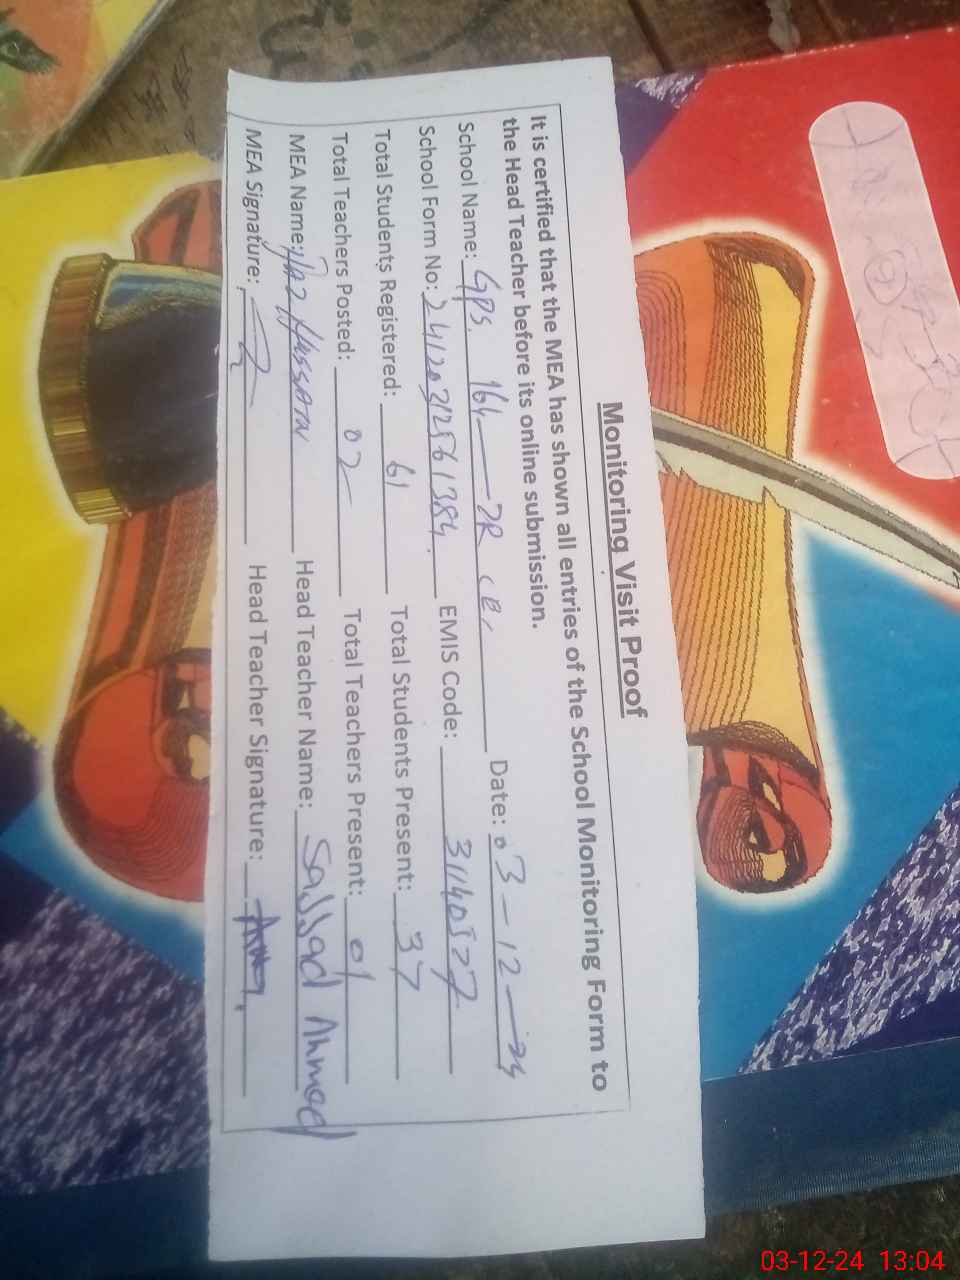 Monitoring Visit Proof
It is certified that the MEA has shown all entries of the School Monitoring Form to
the Head Teacher before its online submission.
School Name: GPS 164—7R (B) Date: 03-12-24
School Form No: EMIS Code: 31140527
Total Students Registered: 61 Total Students Present: 37
Total Teachers Posted: 02 Total Teachers Present: 01
MEA Name: Hassan Head Teacher Name: Sajjad Ahmed
MEA Signature: Head Teacher Signature:
03-12-24 13:04